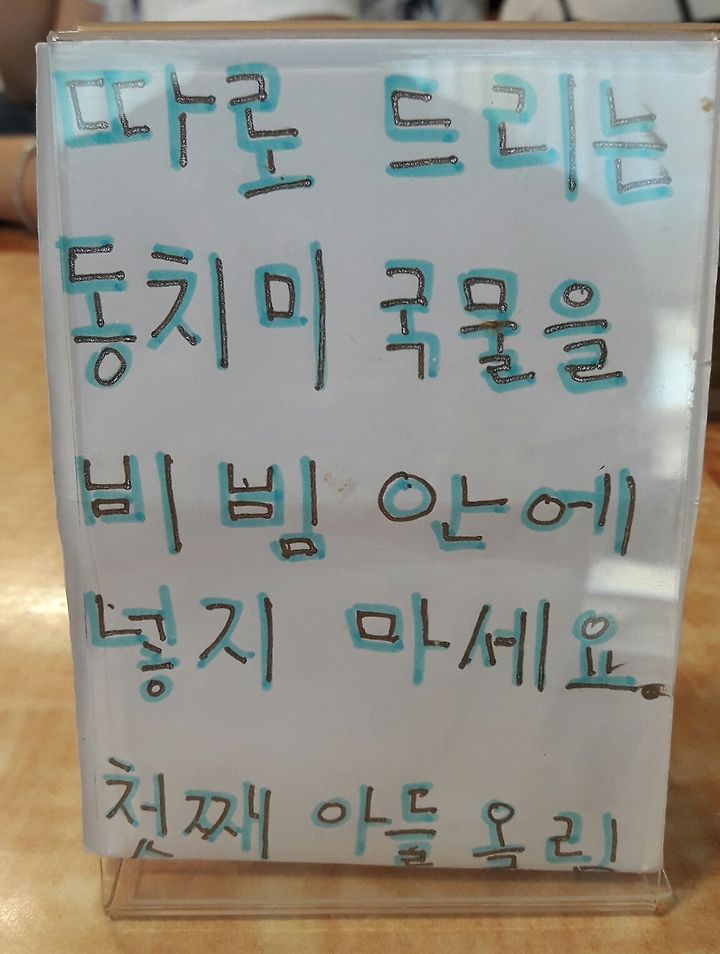 따로 드리는
동치미 국물을
비빔 안에
넣지 마세요.
첫째 아들 올림